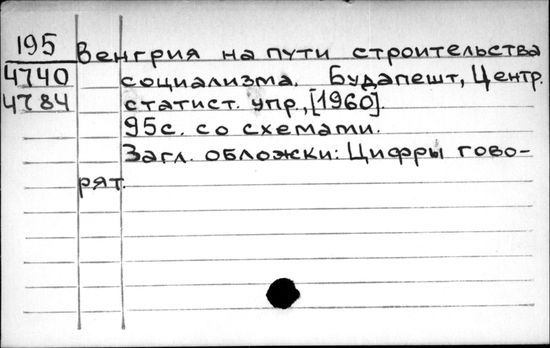 195
Венгрия на пути строительства
4740 социализма. Будапешт, Центр.
4784 статист. упр., [1960].
95с. со схемами.
Загл. обложки: Цифры гово-
рят.